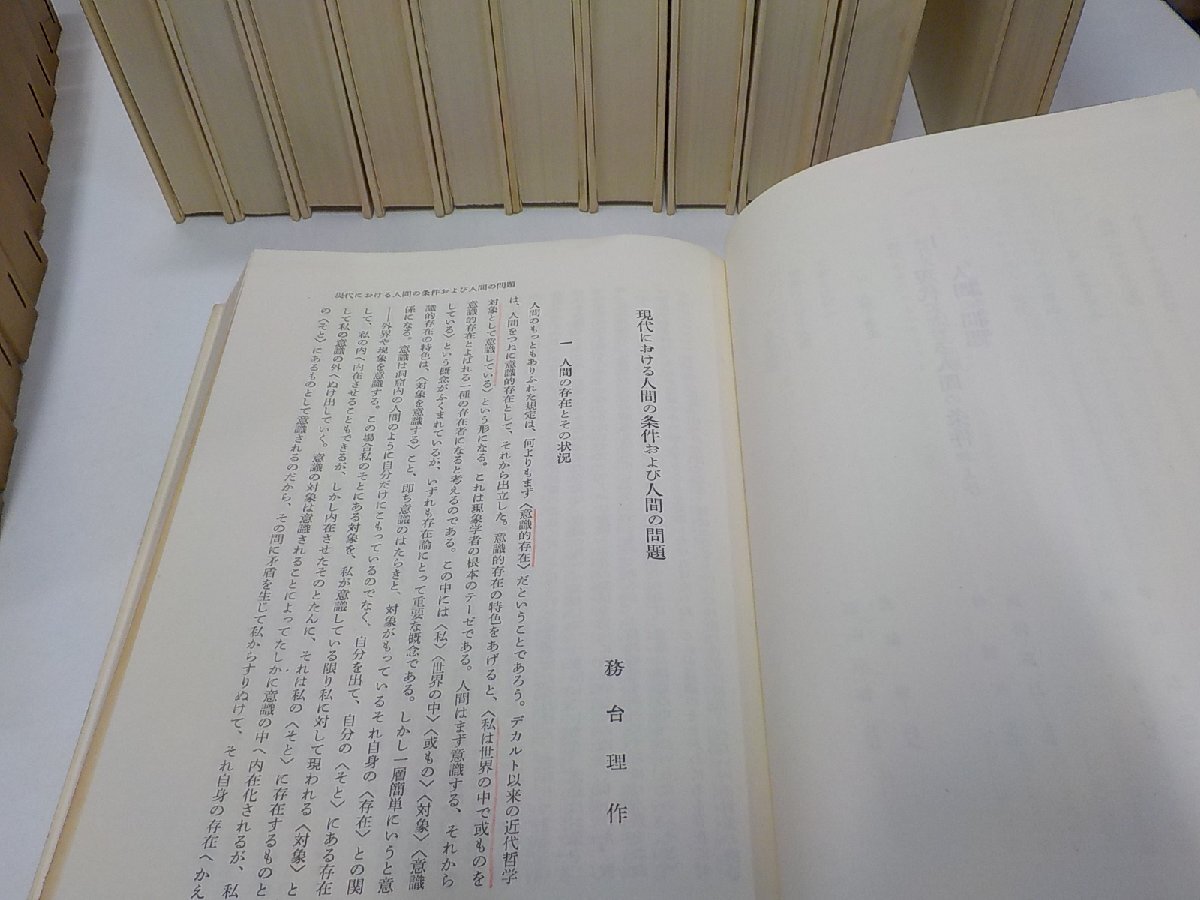 現代における人間の条件および人間の問題
務台理作
一 人間の存在とその状況
人間のもっともありふれた規定は、何よりもまず〈意識的存在〉だということであろう。デカルト以来の近代哲学
は、人間をつねに意識的存在として、それから出立した。意識的存在の特色をあげると、〈私は世界の中で或ものを
対象として意識している〉という形になる。これは現象学者の根本のテーゼである。人間はまず意識する、それから
意識的存在とよばれる一種の存在者になると考えるのである。この中には〈私〉〈世界の中〉〈或もの〉〈対象〉〈意識
している〉という概念がふくまれているが、いずれも存在論にとって重要な概念である。しかし一層簡単にいうと意
識的存在の特色は、〈対象を意識する〉こと、即ち意識のはたらきと、対象がもっているそれ自身の〈存在〉との関
係になる。意識は洞窟内の人間のように自分だけにこもっているのでなく、自分を出て、自分の〈そと〉にある存在
――外界や現象を意識する。この場合私のそとにある対象を、私が意識している限り私に対して現われる〈対象〉と
して、私の内へ内在させることもできるが、しかし内在させたそのとたんに、それは私の〈そと〉に存在するものと
して私の意識の外へぬけ出していく。意識の対象は意識されることによってたしかに意識の中へ内在化されるが、私
の〈そと〉にあるものとして意識されるのだから、その間に矛盾を生じて私からすりぬけて、それ自身の存在へかえ
現代における人間の条件および人間の問題